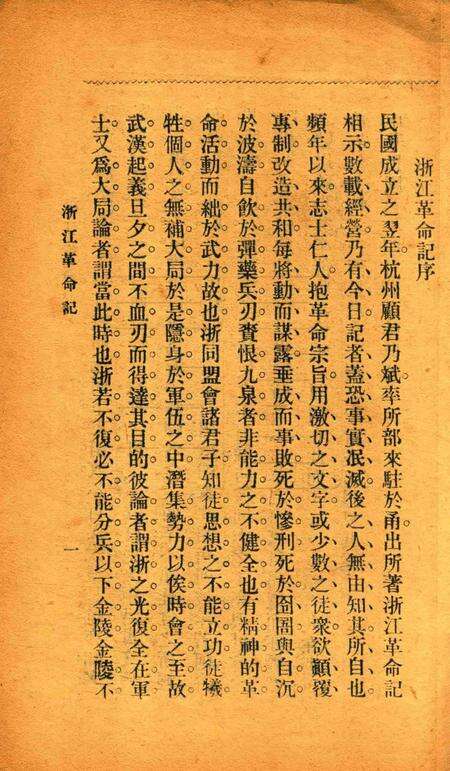 浙江革命記序
民國成立之翌年杭州顧君乃斌率所部來駐於甬出所著浙江革命記
相示數載經營乃有今日記者蓋恐事實泯滅後之人無由知其所自也
頻年以來志士仁人抱革命宗旨用激切之文字或少數之徒衆欲顚覆
專制改造共和每將動而謀露垂成而事敗死於慘刑死於囹圄與自沉
於波濤自飮於彈藥兵刃賷恨九泉者非能力之不健全也有精神的革
命活動而絀於武力故也浙同盟會諸君子知徒思想之不能立功徒犧
牲個人之無補大局於是隱身於軍伍之中潛集勢力以俟時會之至故
武漢起義旦夕之間不血刃而得達其目的彼論者謂浙之光復全在軍
士又爲大局論者謂當此時也浙若不復必不能分兵以下金陵金陵不
浙江革命記
一